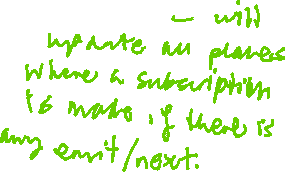 - will
update all places
where a subscription
is made if there is
any emit/next.